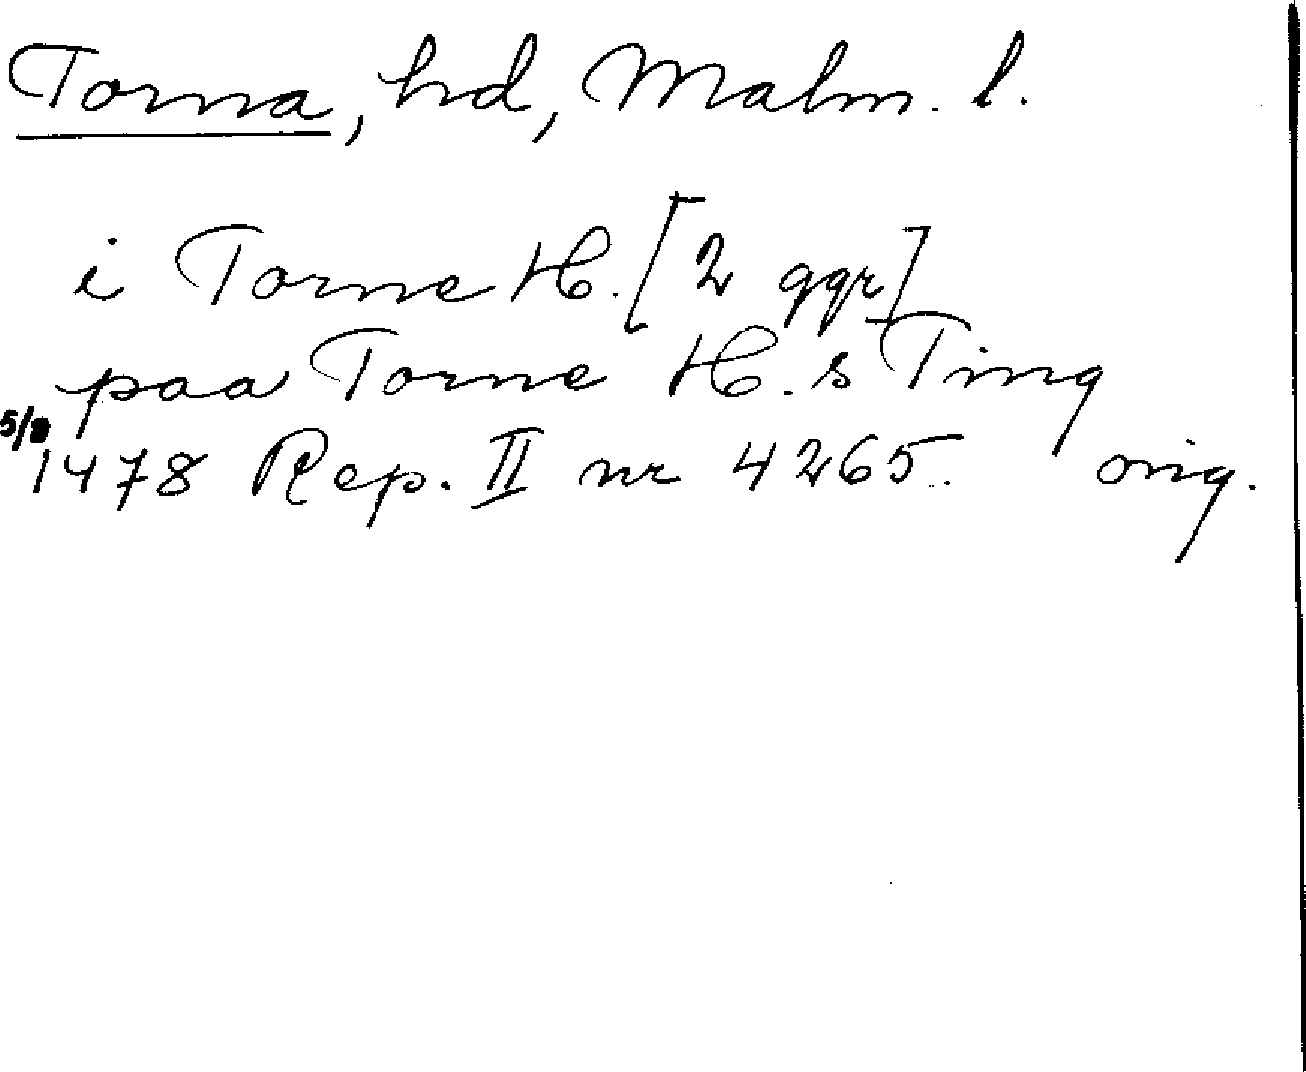 Torna, hd, Malm. l.
i Torne H. [2 ggr]
paa Torne H. s Ting
1478 Rep. II nr 4265. orig.